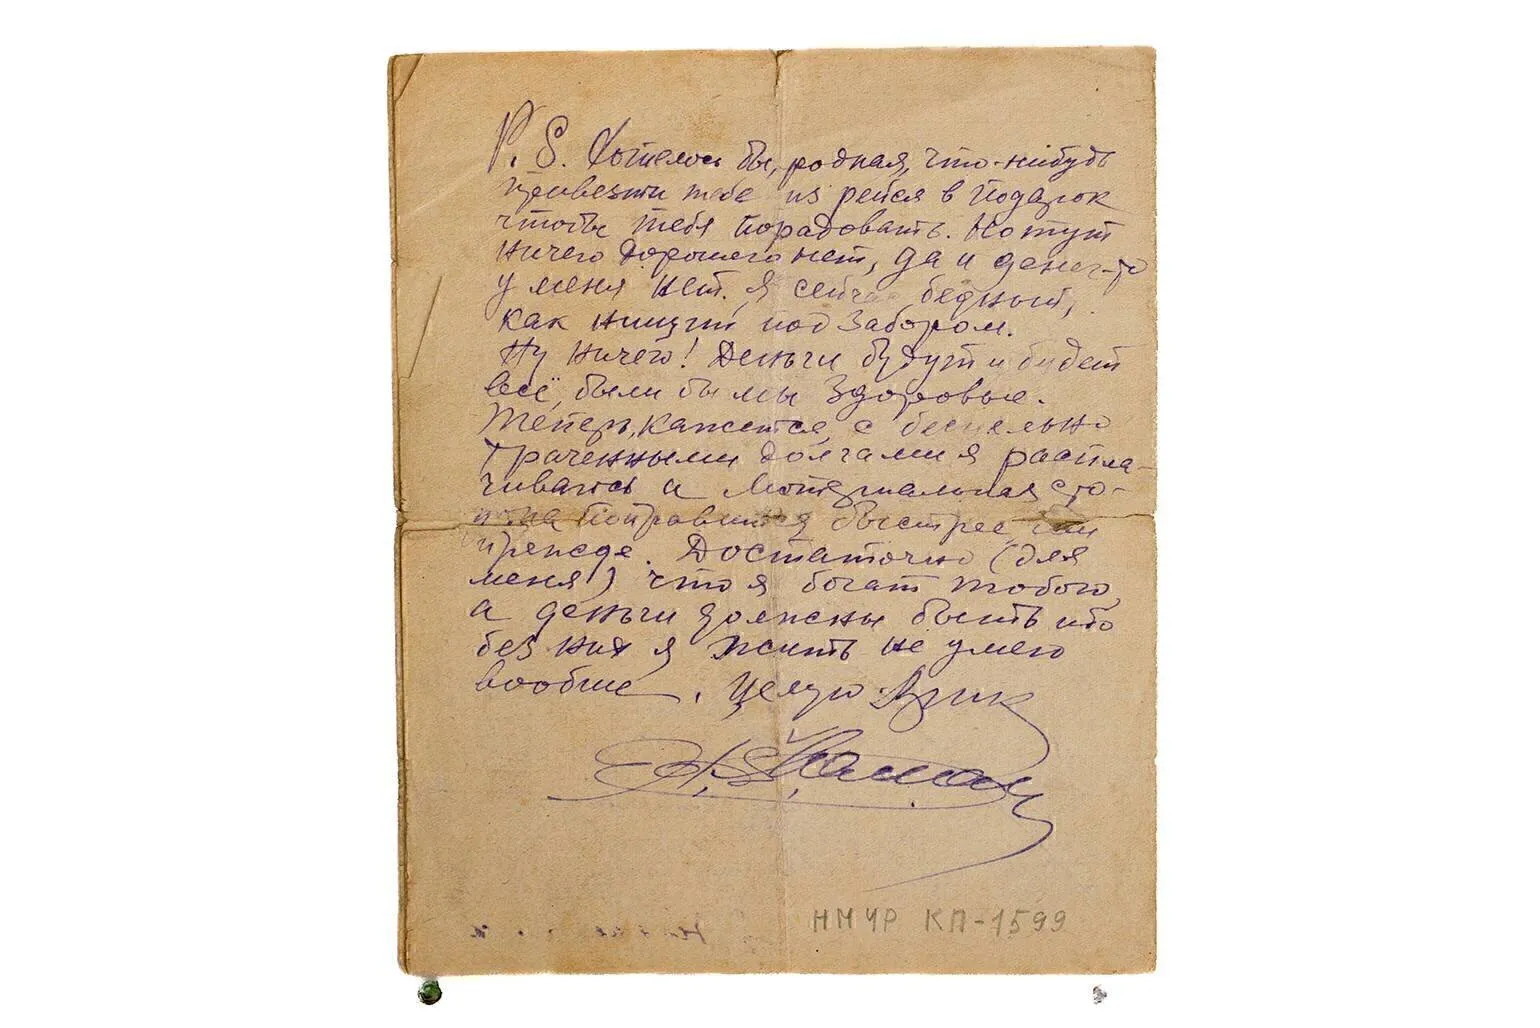 P.S. Хотелось бы, родная, что-нибудь
привезти тебе из рейса в подарок
чтобы тебя порадовать. Но тут
ничего хорошего нет, да и денег-то
у меня нет. Я сейчас бедный,
как нищий под забором.
Ну ничего! Деньги будут и будет
всё, были бы мы здоровые.
Теперь, кажется, с бесцельно
траченными долгами я распла-
чиваюсь а материальная сто-
рона поправится быстрее чем
прежде. Достаточно (для
меня) что я богат тобою,
а деньги должны быть ибо
без них я жить не умею
вообще. Целую
НМЧР КП-1599